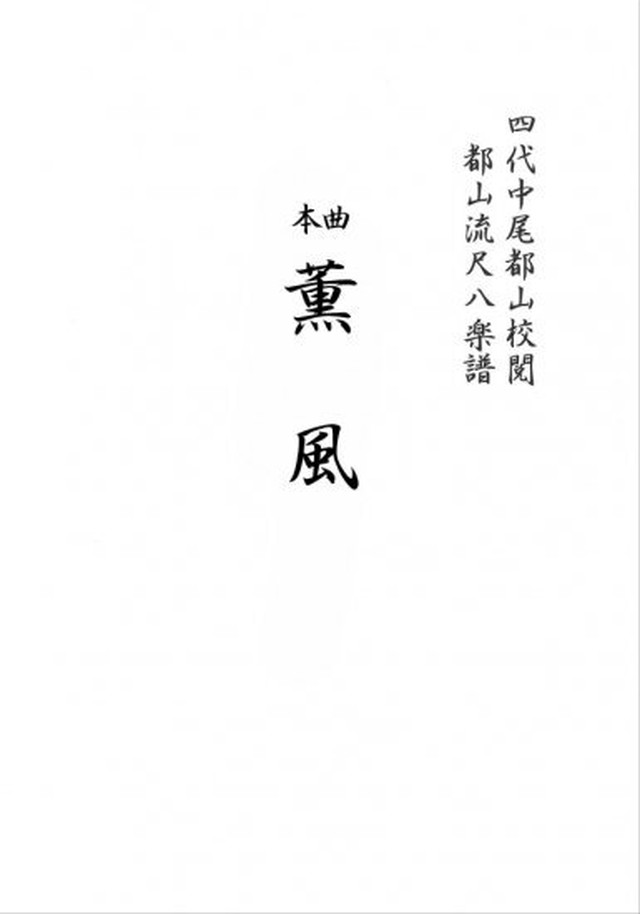 四代中尾都山校閲
都山流尺八楽譜
本曲
薫風